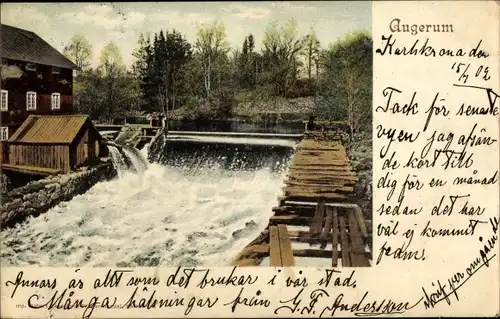 Augerum
Karlskrona den
15/7 02
Tack för senaste
vyen jag afsän-
de kort till
dig för en månad
sedan det har
väl ej kommit
fram.
Annars är allt som det brukar i vår stad.
Många hälsningar från G. F. Andersson